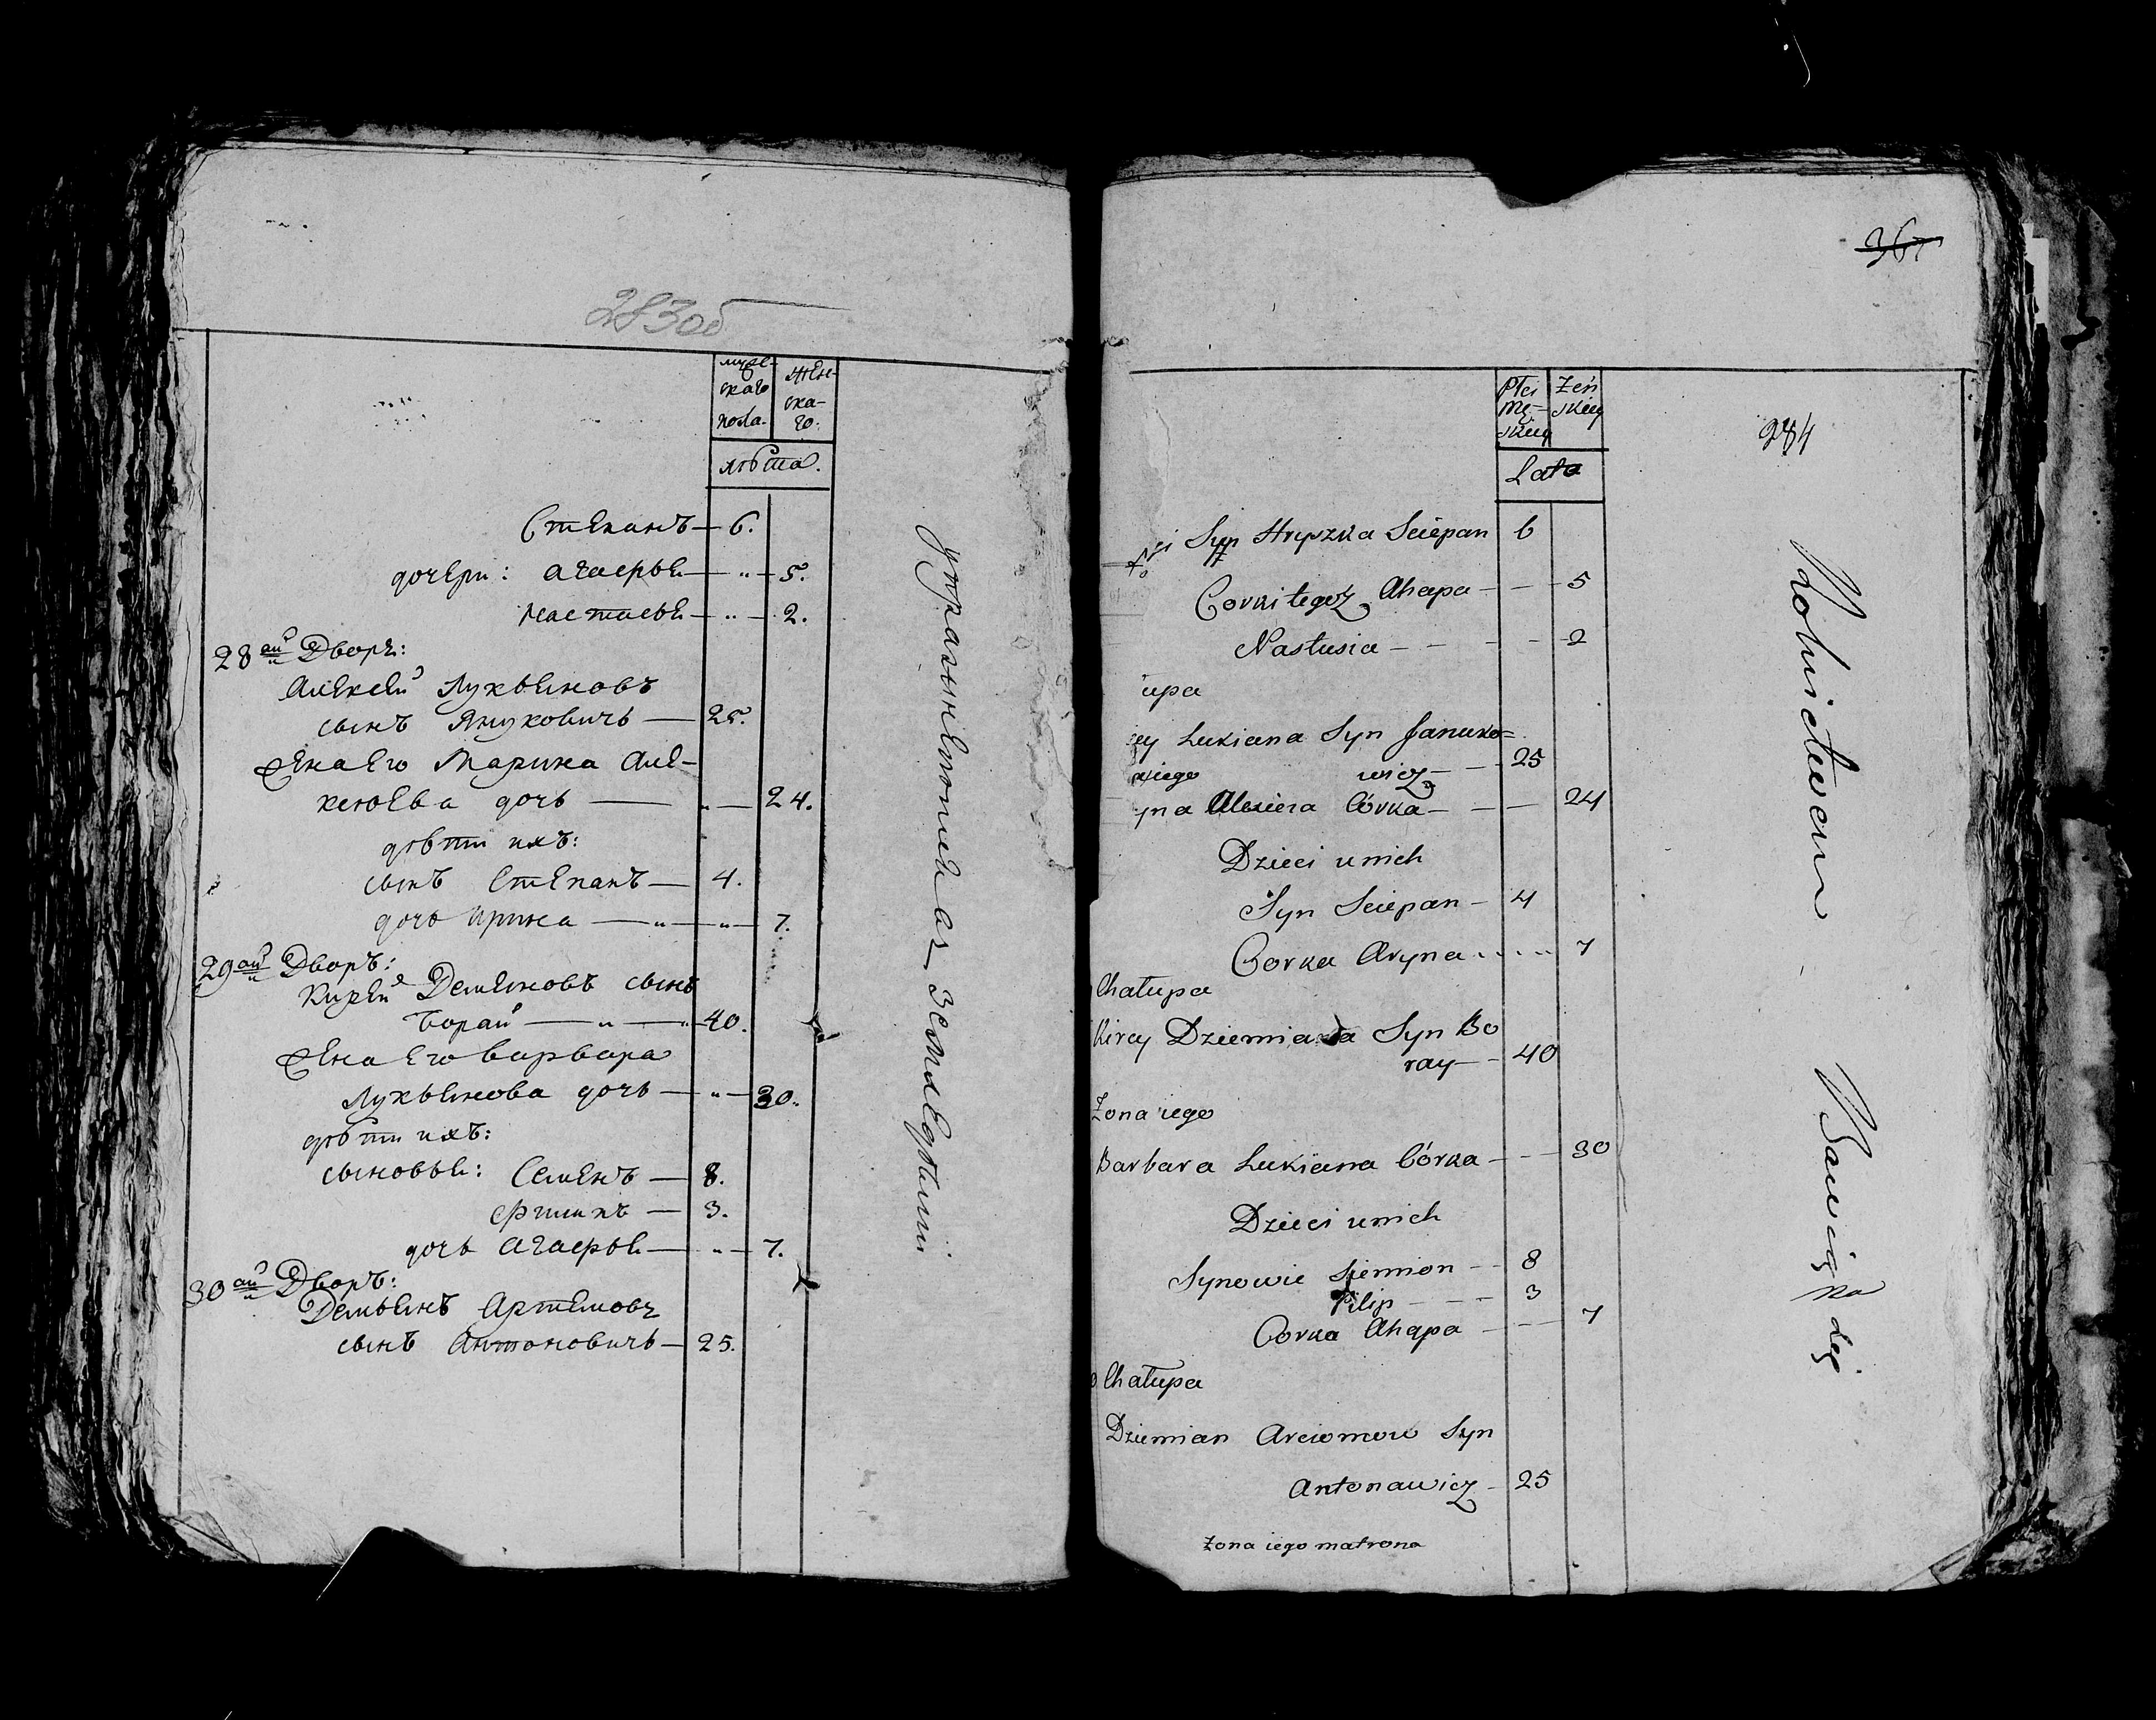 283об
муже-
скаго
пола.
жен-
ска-
го.
лѣта.
Степанъ — 6.
дочери: Агафья — „ — 5.
Настасья — „ — 2.
28ой Дворъ:
Алексей Лукьяновъ
сынъ Януковичь — 25.
Жена Его Марина Але-
ксеева дочь — „ — 24.
дѣти ихъ:
сынъ Степанъ — 4.
дочь Ирина — „ — „ — 7.
29ой Дворъ:
Кирей Демяновъ сынъ
Борай — „ — „ 40.
Жена Его Варвара
Лукьянова дочь — „ — 30.
дѣти ихъ:
сыновья: Семенъ — 8.
Филипъ — 3.
дочь Агафья — „ — 7.
30ой Дворъ:
Демьянъ Артемовъ
сынъ Антоновичь — 25.
упражняются въ земледѣлии
284
Płci
Mę-
skiey
Żeń
skiey
Lata
Syn Hryszka Sciepan 6
Corki tegoz Ahapa - - - 5
Nastusia - - - - 2
upa
ey Lukiana Syn Januko=
wicz - - 25
yna Alexiera Córka - - - 24
Dzieci u nich
Syn Sciepan - 4
Corka Aryna . . . . 7
Chałupa
Kirey Dziemiana Syn Bo
ray - - 40
Żona iego
Barbara Lukiana Córka - - - 30
Dzieci u nich
Synowie Siemion - - 8
Filip - - - 3
Corka Ahapa - - - 7
Chałupa
Dziemian Arciomow Syn
Antonawicz - 25
Żona iego matrona
Rolnictwem Bawią się